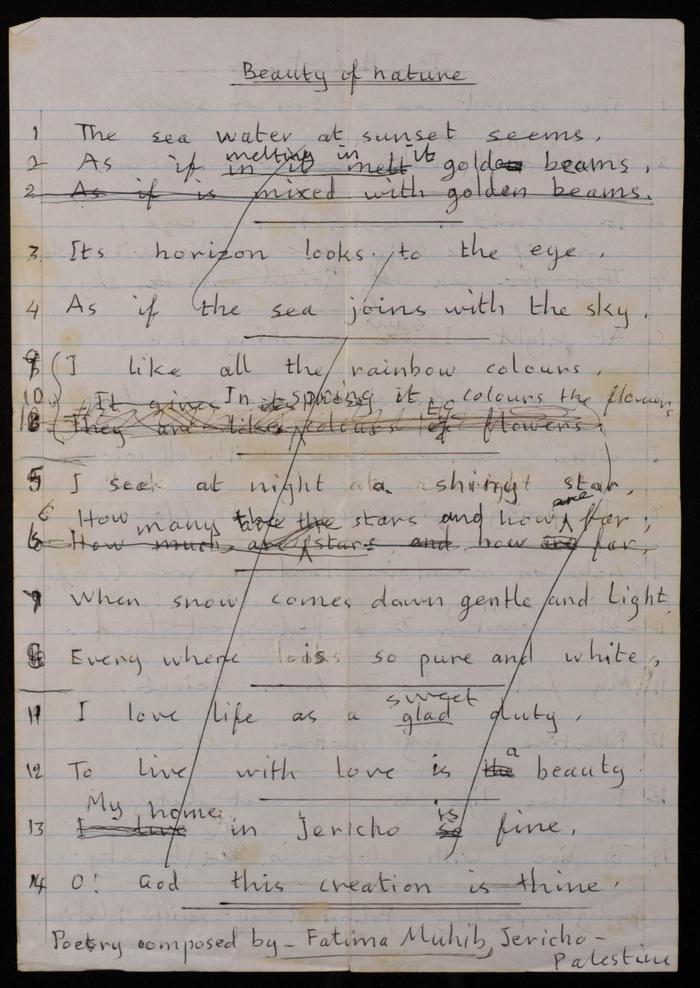 Beauty of nature
1 The sea water at sunset seems,
melting in it
2 As if in it melt golden beams,
2 As if is mixed with golden beams.
3 Its horizon looks to the eye,
4 As if the sea joins with the sky.
9 I like all the rainbow colours,
10 It gives In spring it colours the flowers
They are like colours of flowers
5 I seek at night a shining star,
are
6 How many the stars and how far;
6 How much are stars and how are far,
7 When snow comes down gentle and Light
8 Every where is so pure and white,
sweet
11 I love life as a glad duty,
a
12 To live with love is the beauty
My home is
13 I live in Jericho so fine,
14 O! God this creation is thine.
Poetry composed by - Fatima Muhib, Jericho -
Palestine